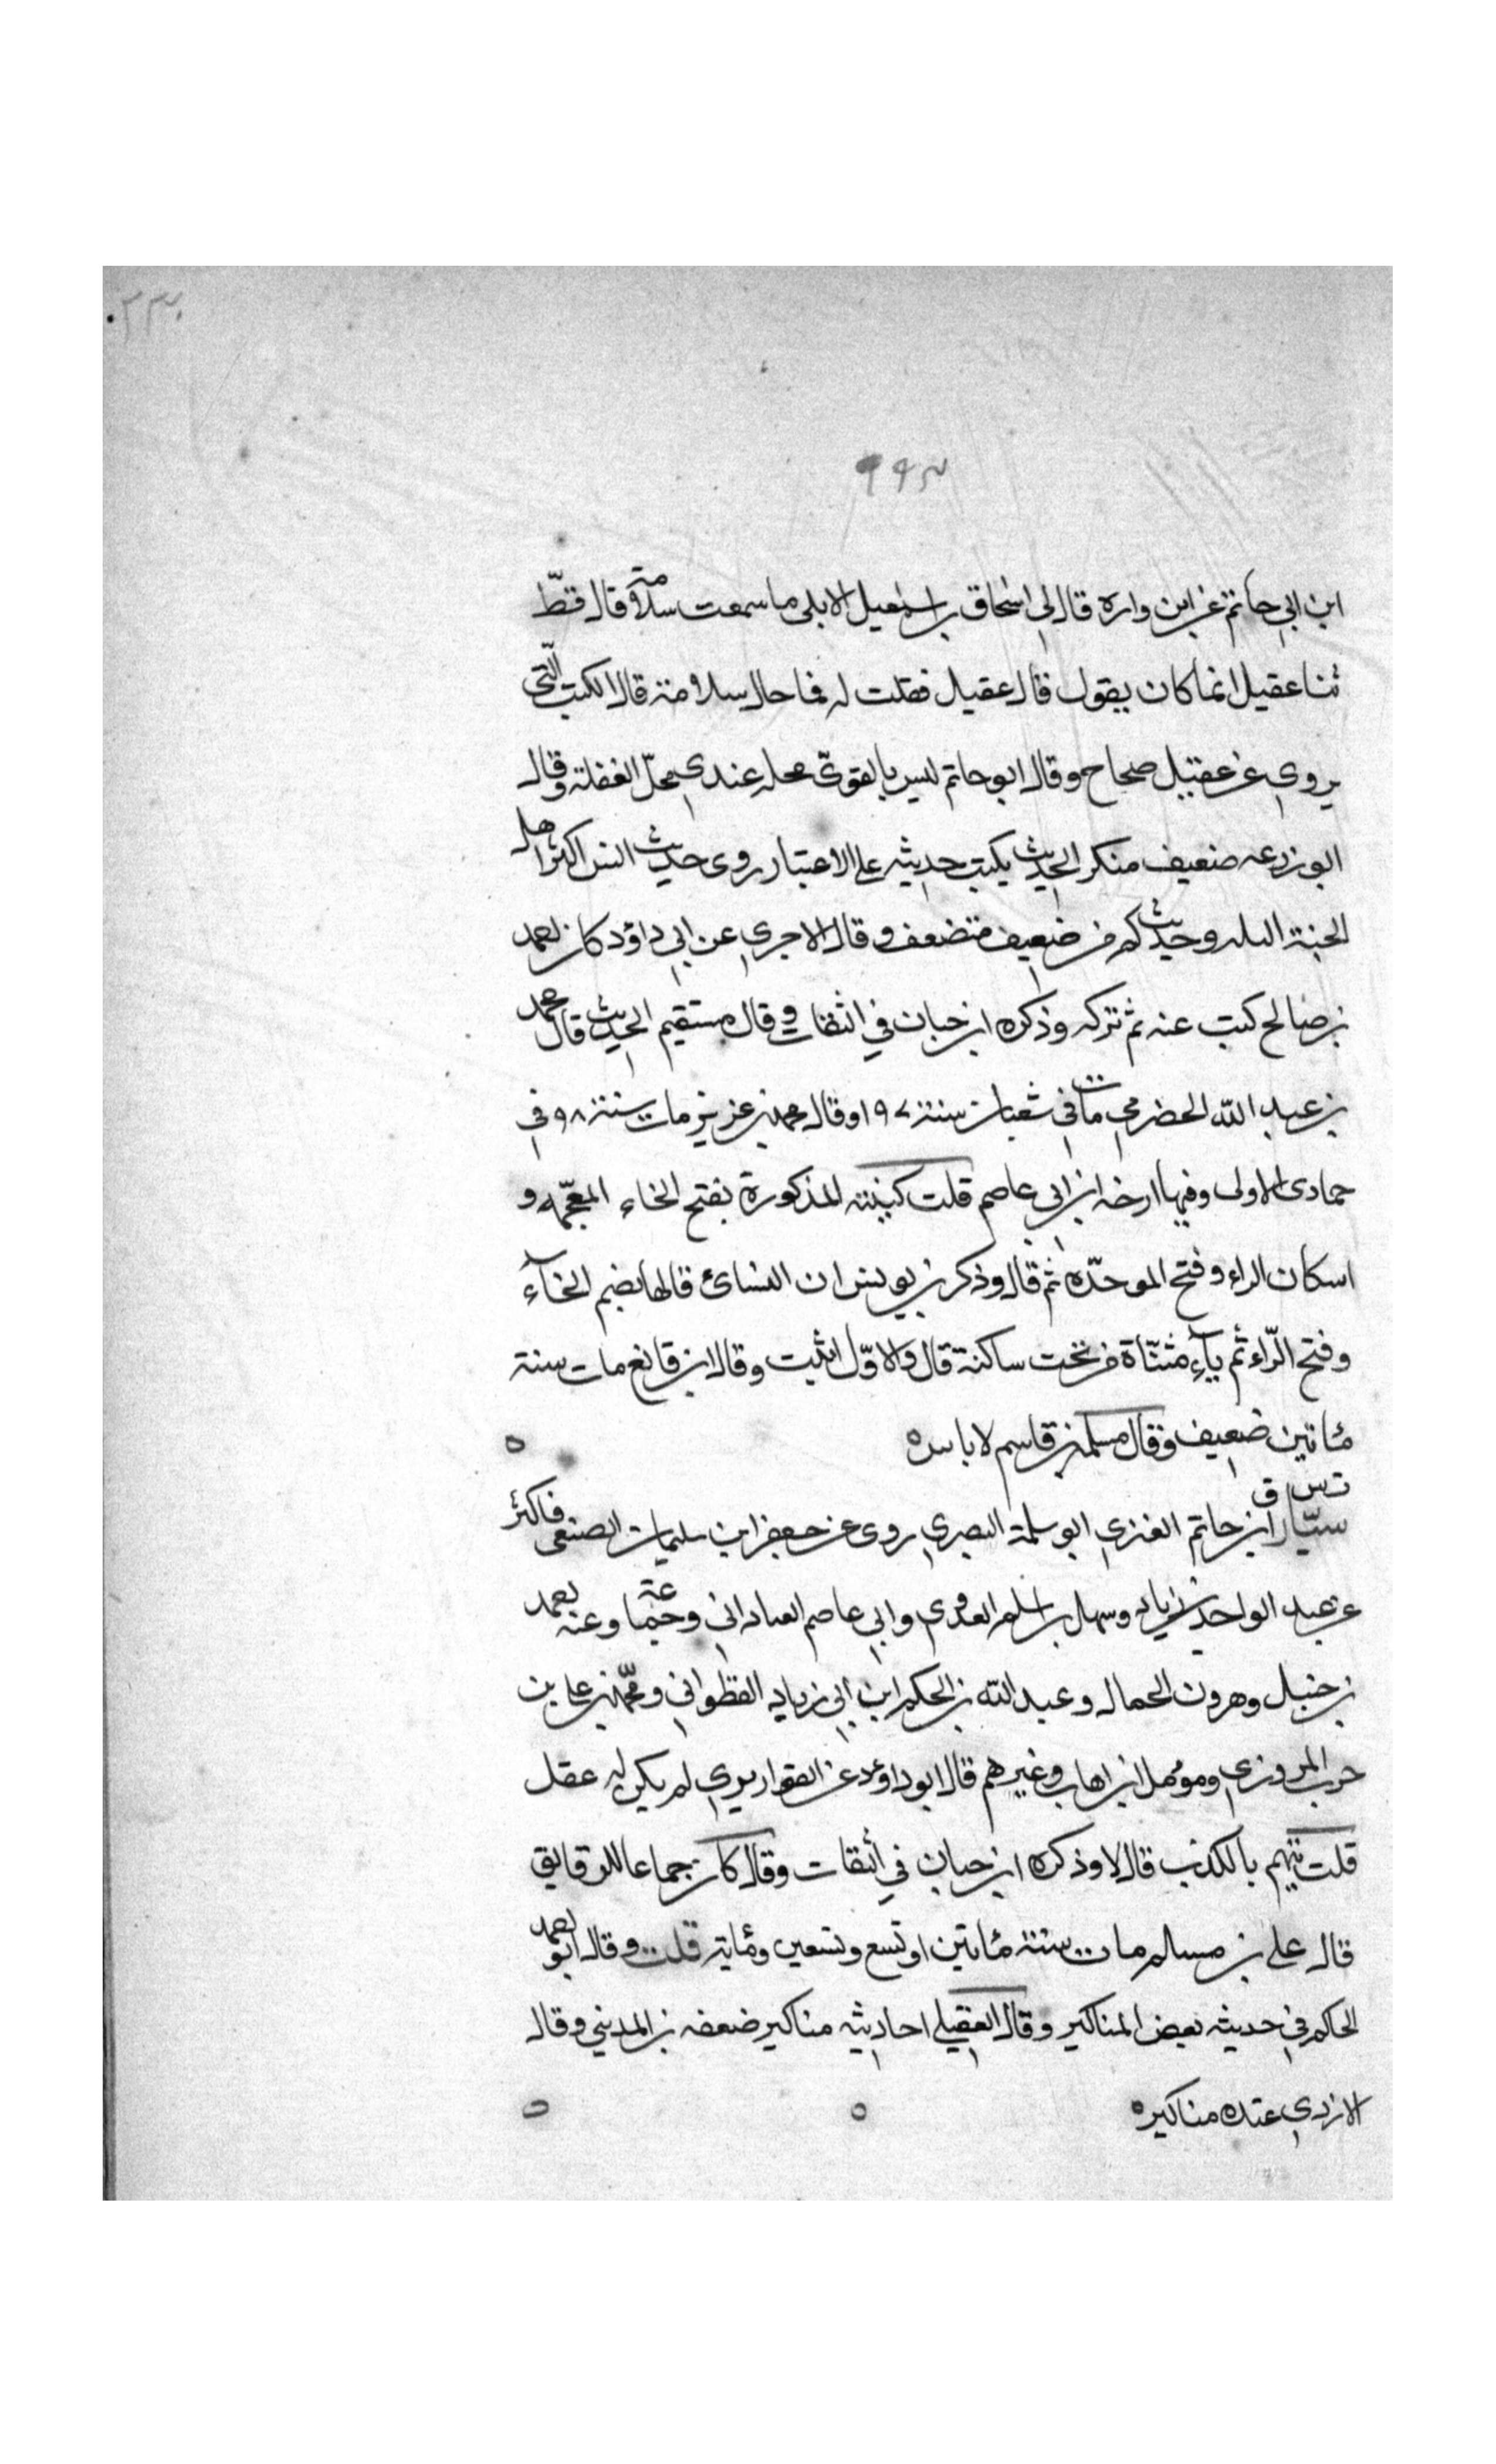 ابن ابي حاتم عن ابن واره قال لي اسحاق بن اسمعيل الابلي ما سمعت سلامة قال قطّ
ثنا عقيل انما كان يقول قال عقيل فقلت له فما حال سلامة قال الكتب الّتي
يروي عن عقيل صحاح وقال ابو حاتم ليس بالقويّ محله عندي محلّ الغفلة وقال
ابو زرعه ضعيف منكر الحديث يكتب حديثه على الاعتبار روى حديث انس اكثر اهل
الجنة البله وحديث كم من ضعيف متضعف وقال الاجري عن ابي داؤد كان احمد
بن صالح كتب عنه ثم تركه وذكره ابن حبان في الثقات وقال مستقيم الحديث قال محمد
بن عبد الله الحضرمي مات في شعبان سنة ١٩٧ وقال محمد بن عزيز مات سنة ٩٨ في
جمادى الاولى وفيها ارخه ابن ابي عاصم قلت كنيته المذكورة بفتح الخاء المعجمه و
اسكان الراء وفتح الموحّده ثم قال وذكر بن يونس ان النسائ قالها بضم الخآء
وفتح الرّاء ثم يآء مثنّاة من تحت ساكنة قال والاوّل اثبت وقال ابن قانع مات سنة
مئاتين ضعيف وقال مسلمة بن قاسم لا باس ه
ت س ق
سيّار ابن حاتم العنزي ابو سلمة البصري روى عن جعفر ابن سليمان الضبعي فاكثر
عن عبد الواحد بن زياد وسهل بن اسلم العدوي وابي عاصم العباداني وجماعة وعنه احمد
بن حنبل وهرون الحمال وعبد الله بن الحكم ابن ابي زياد القطواني ومحمّد بن علي بن
حرب المروزي ومومل ابن اهاب وغيرهم قال ابو داوءد عن القواريري لم يكن له عقل
قلت يتهم بالكذب قال لا وذكره ابن حبان في الثقات وقال كان جماعا للرقايق
قال علي بن مسلم مات سنة مئاتين او تسع وتسعين ومئاية قلت وقال ابو احمد
الحاكم في حديثه بعض المناكير وقال العقيلي احاديثه مناكير ضعفه بن المديني وقال
الازدي عنده مناكير ه